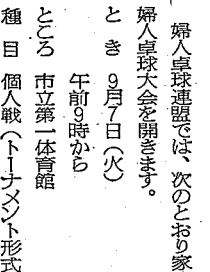 婦人卓球連盟では、次のとおり家
婦人卓球大会を開きます。
とき 9月7日(火)
午前9時から
ところ 市立第一体育館
種目 個人戦(トーナメント形式